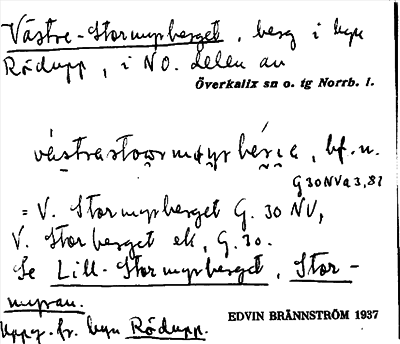 Västre-Stormyrberget, berg i byn
Rödupp, i NO. delen av
Överkalix sn o. tg Norrb. l.
bf.n.
G30NVa3,81
= V. Stormyrberget G. 30 NV,
V. Storberget ek, G. 30.
Se Lill-Stormyrberget, Stor-
myran.
Uppg. fr. byn Rödupp.
EDVIN BRÄNNSTRÖM 1937